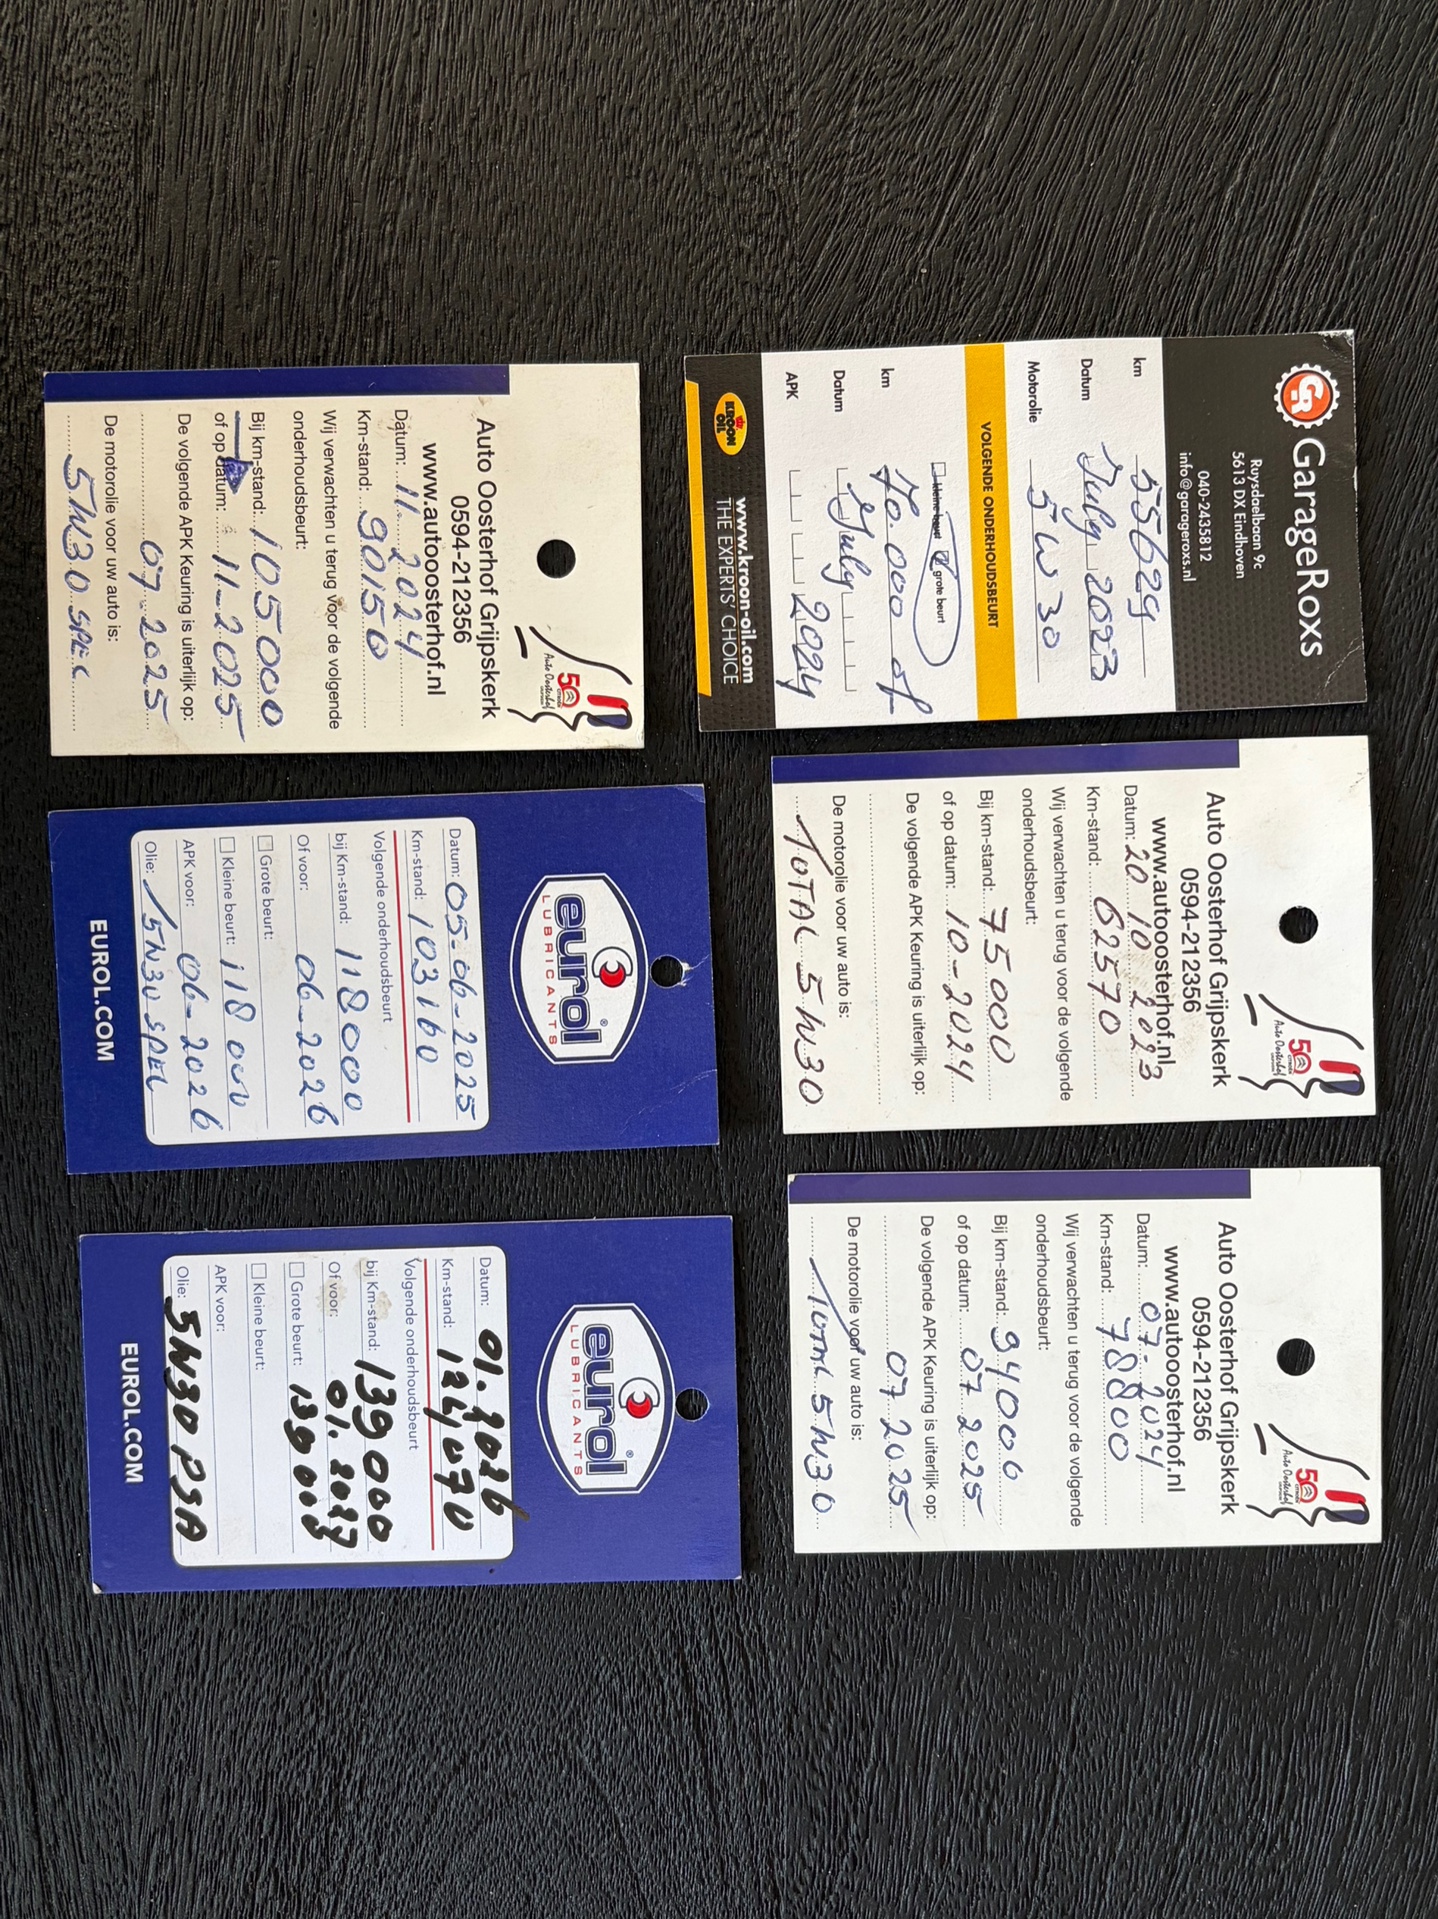 GR GarageRoxs
Ruysdaelbaan 9c
5613 DX Eindhoven
040-2435812
info@garageroxs.nl
km 55629
Datum July 2023
Motorolie 5W30
VOLGENDE ONDERHOUDSBEURT
kleine beurt grote beurt
km 70.000 of
Datum July
APK 2024
KROON OIL
www.kroon-oil.com
THE EXPERTS' CHOICE
50
CITROËN
Auto Oosterhof
Auto Oosterhof Grijpskerk
0594-212356
www.autooosterhof.nl
Datum: 20 10 2023
Km-stand: 62570
Wij verwachten u terug voor de volgende
onderhoudsbeurt:
Bij km-stand: 75000
of op datum: 10-2024
De volgende APK Keuring is uiterlijk op:
De motorolie voor uw auto is:
TOTAL 5W30
50
CITROËN
Auto Oosterhof
Auto Oosterhof Grijpskerk
0594-212356
www.autooosterhof.nl
Datum: 07-2024
Km-stand: 78800
Wij verwachten u terug voor de volgende
onderhoudsbeurt:
Bij km-stand: 94000
of op datum: 07 2025
De volgende APK Keuring is uiterlijk op:
07 2025
De motorolie voor uw auto is:
5W30
50
CITROËN
Auto Oosterhof
Auto Oosterhof Grijpskerk
0594-212356
www.autooosterhof.nl
Datum: 11. 2024
Km-stand: 90150
Wij verwachten u terug voor de volgende
onderhoudsbeurt:
Bij km-stand: 105000
of op datum: 11-2025
De volgende APK Keuring is uiterlijk op:
07 2025
De motorolie voor uw auto is:
5W30 SPEC
eurol®
LUBRICANTS
Datum: 05-06-2025
Km-stand: 103160
Volgende onderhoudsbeurt
bij Km-stand: 118000
Of voor: 06-2026
Grote beurt:
Kleine beurt: 118000
APK voor: 06-2026
Olie: 5W30 SPEC
EUROL.COM
eurol®
LUBRICANTS
Datum: 01.2026
Km-stand: 124070
Volgende onderhoudsbeurt
bij Km-stand: 139000
Of voor: 01.2027
Grote beurt: 139000
Kleine beurt:
APK voor:
Olie: 5W30 PSA
EUROL.COM